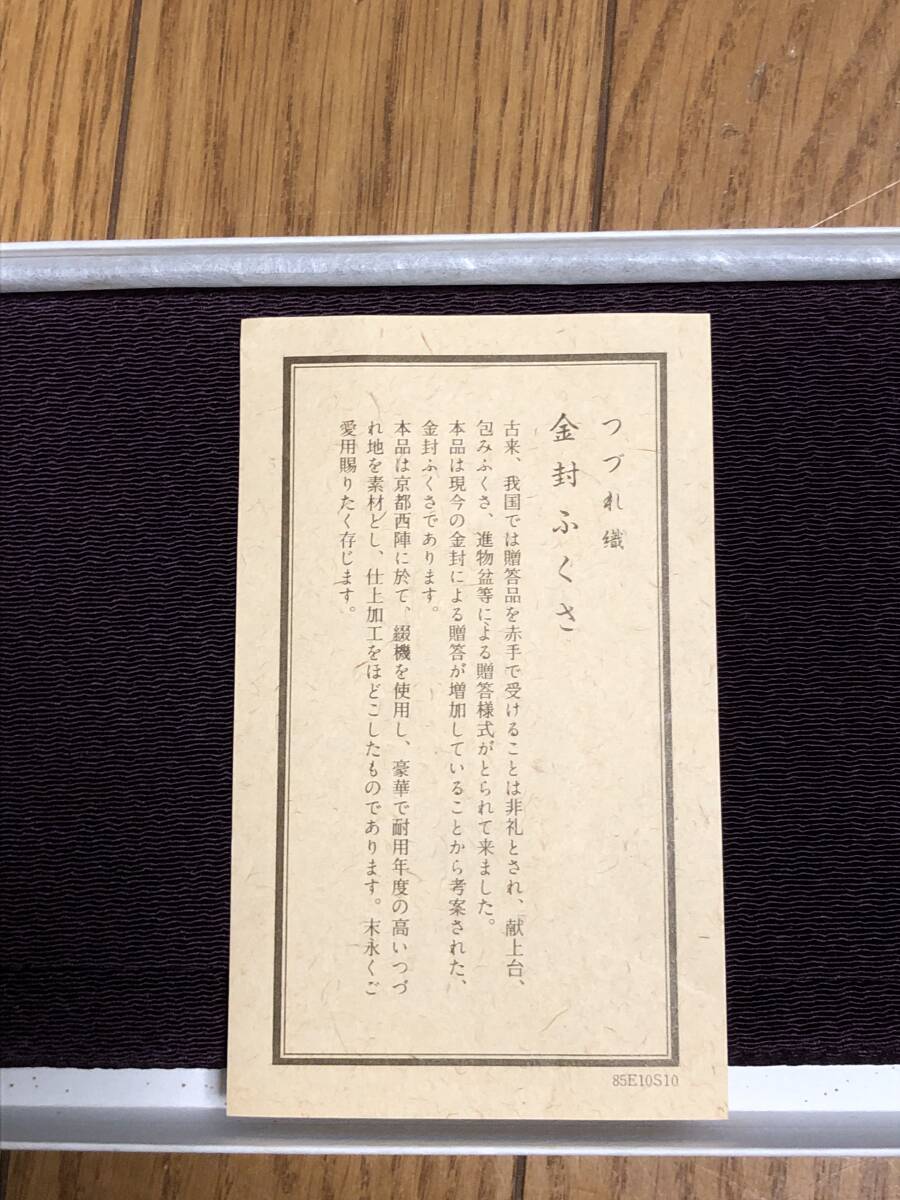 つづれ織
金封ふくさ
古来、我国では贈答品を赤手で受けることは非礼とされ、献上台、
包みふくさ、進物盆等による贈答様式がとられて来ました。
本品は現今の金封による贈答が増加していることから考案された、
金封ふくさであります。
本品は京都西陣に於て、綴機を使用し、豪華で耐用年度の高いつづ
れ地を素材とし、仕上加工をほどこしたものであります。末永くご
愛用賜りたく存じます。
85E10S10